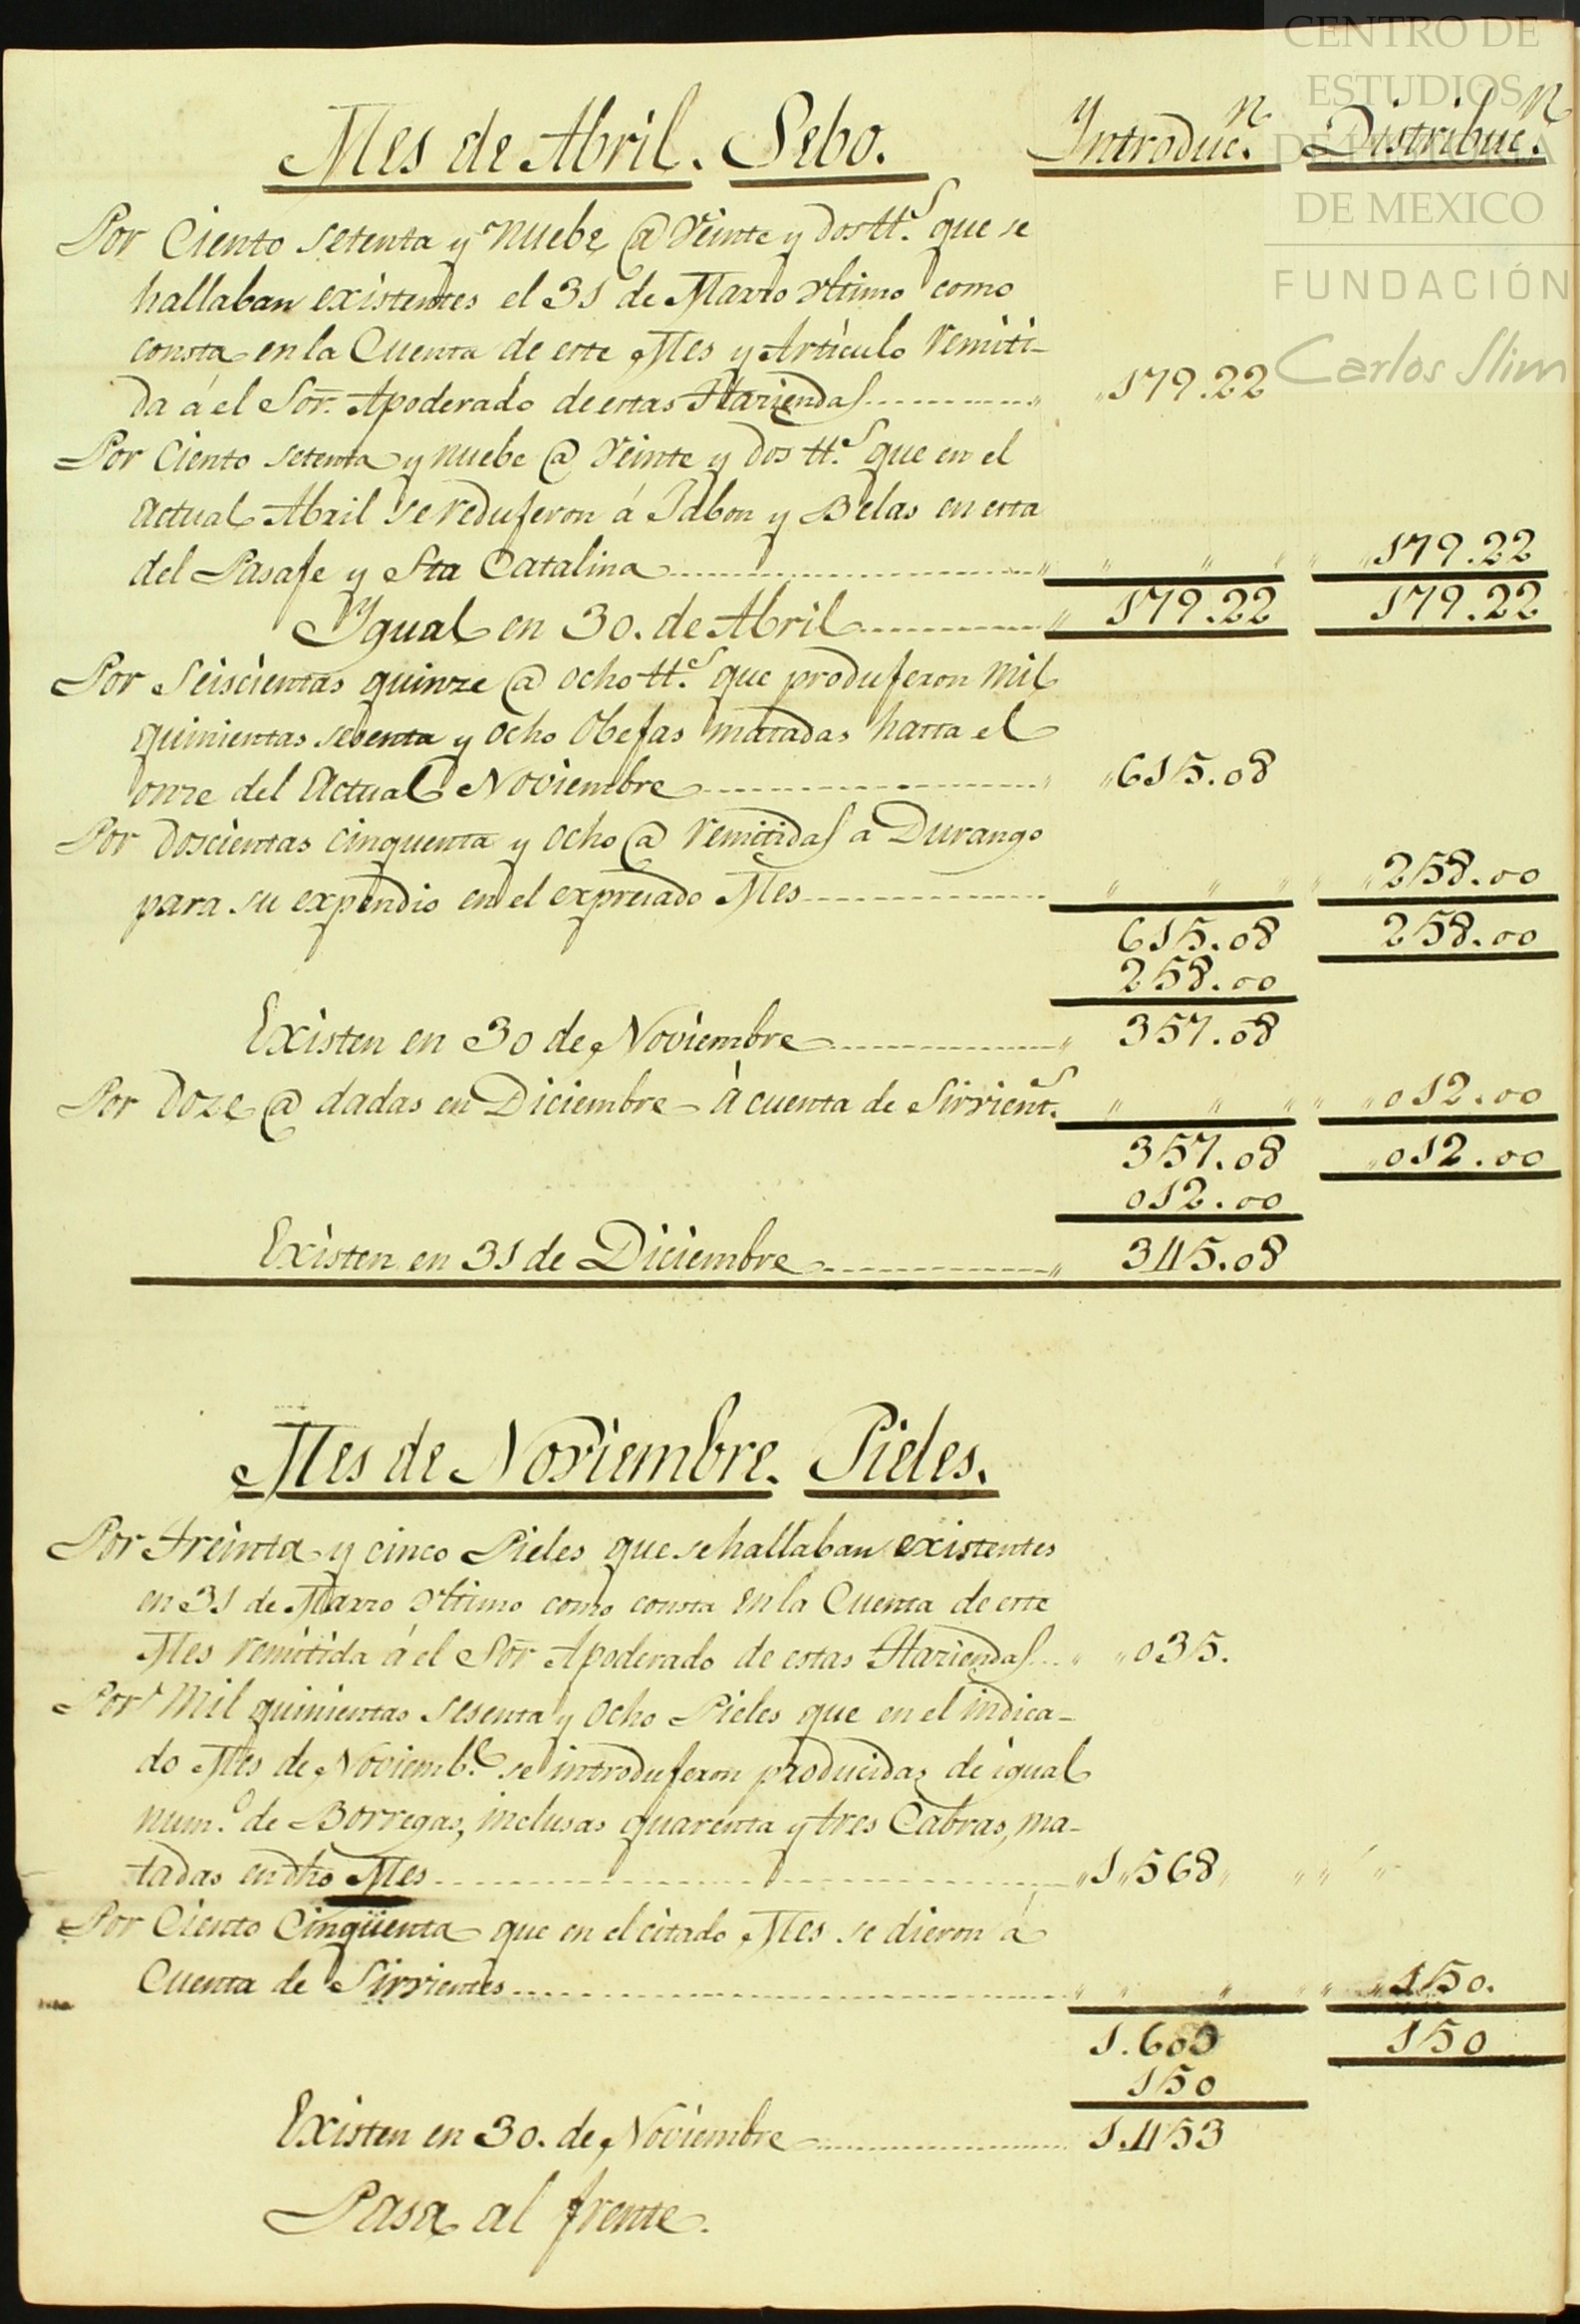 CENTRO DE
ESTUDIOS
DE HISTORIA
DE MEXICO
FUNDACIÓN
Carlos Slim
Mes de Abril. Sebo. Introduc.n Distribuc.n
Por Ciento setenta y nuebe @ veinte y dos tt.s que se
hallaban existentes el 31 de Marzo vltimo como
consta en la Cuenta de este Mes y Artículo remiti-
da á el Sor. Apoderado de estas Haziendas „179.22
Por Ciento setenta y nuebe @ veinte y dos tt.s que en el
actual Abril se redujeron á Jabon y Belas en esta
del Pasaje y Sta Catalina „ „ „ „ „179.22
Ygual en 30. de Abril „ 179.22 179.22
Por Seiscientas quinze @ ocho tt.s que produjeron mil
quinientas sesenta y ocho Obejas matadas hasta el
onze del Actual Noviembre „ „615.08
Por doscientas cinquenta y ocho @ remitidas a Durango
para su expendio en el expresado Mes „ „ „ „ „258.00
615.08 258.00
258.00
Existen en 30 de Noviembre „ 357.08
Por Doze @ dadas en Diciembre - á cuenta de Sirvient.s „ „ „ „ „012.00
357.08 „012.00
012.00
Existen en 31 de Diciembre „ 345.08
Mes de Noviembre. Pieles.
Por treinta y cinco Pieles que se hallaban existentes
en 31 de Marzo vltimo como consta en la Cuenta de este
Mes remitida á el Sor Apoderado de estas Haziendas „ „035.
Por Mil quinientas sesenta y ocho Pieles que en el indica-
do Mes de Noviemb.e se introdujeron producidas de igual
num.o de Borregas, inclusas quarenta y tres Cabras, ma-
tadas en dho Mes „1„568„ „ „ „
Por Ciento Cinqüenta que en el citado Mes se dieron á
Cuenta de Sirvientes „ „ „ „ „ „150.
1.603 150
150
Existen en 30. de Noviembre 1.453
Pasa al frente.